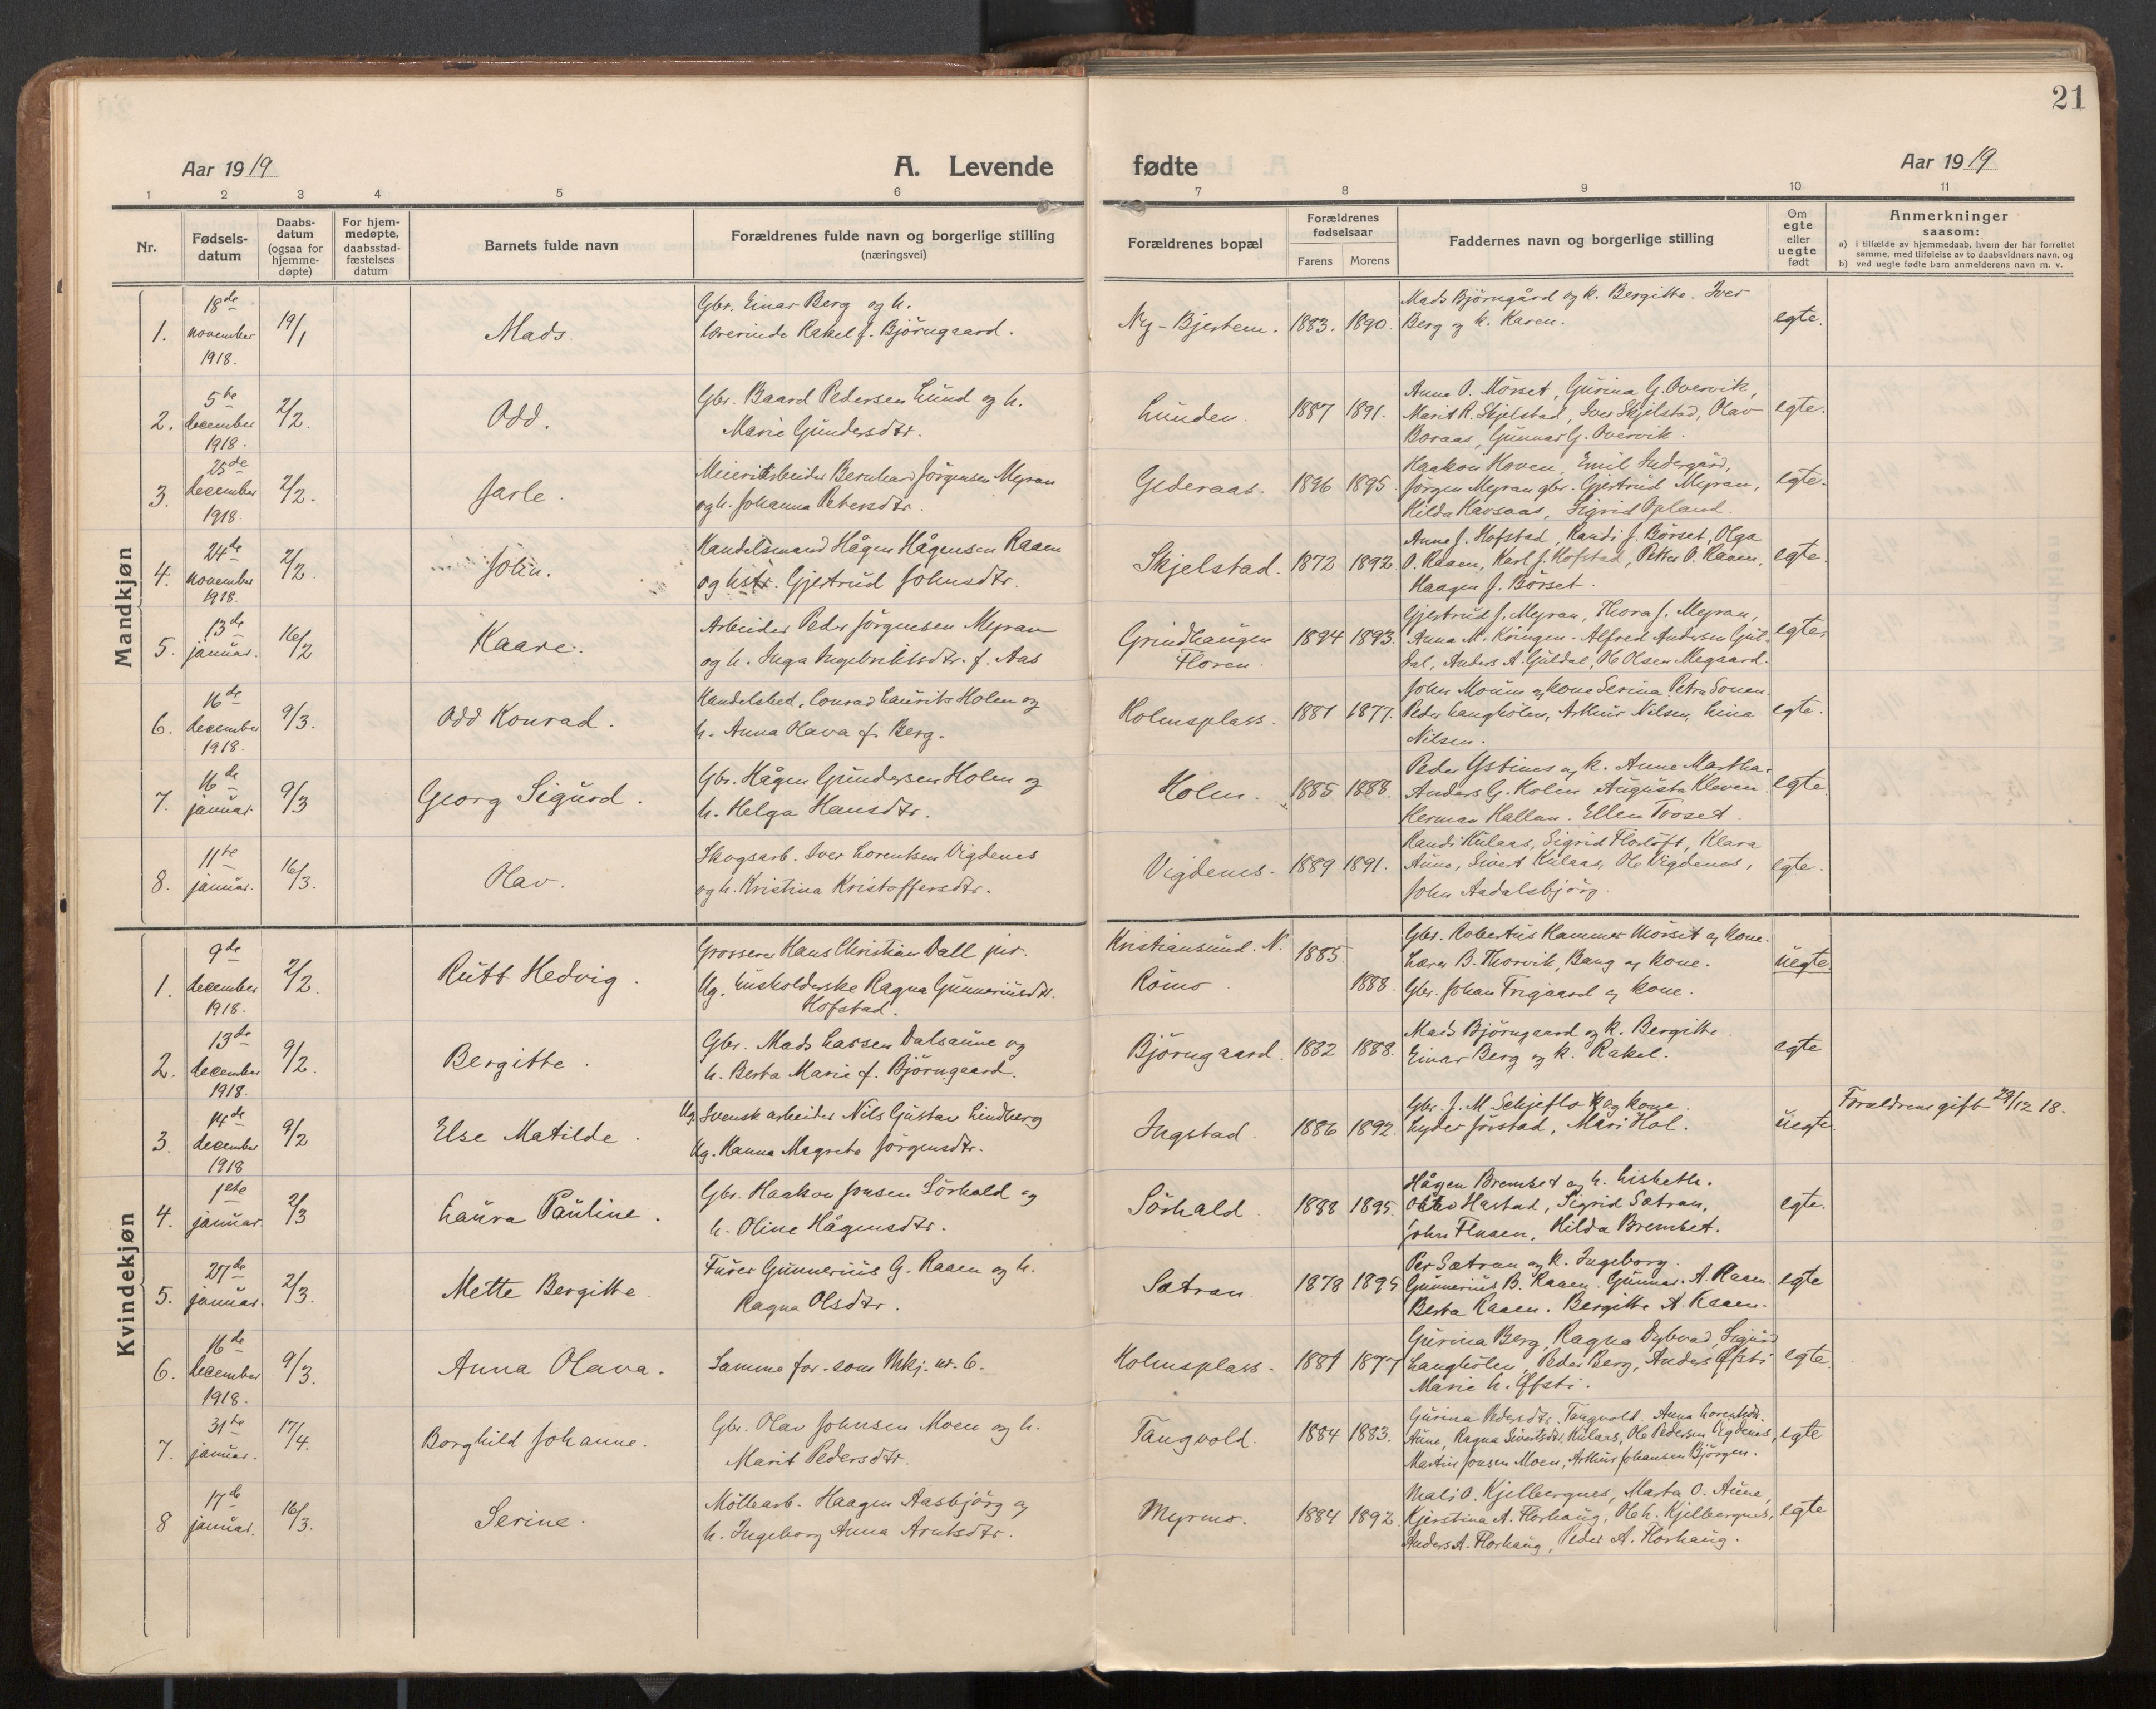 21
Aar 1919
A. Levende fødte
Aar 1919
1 2 3 4 5 6 7 8 9 10 11
Nr.
Fødsels-
datum
Daabs-
datum
(ogsaa for
hjemme-
døpte)
For hjem-
medøpte,
daabsstad-
fæstelses
datum
Barnets fulde navn
Forældrenes fulde navn og borgerlige stilling
(næringsvei)
Forældrenes bopæl
Forældrenes
fødselsaar
Farens Morens
Faddernes navn og borgerlige stilling
Om
egte
eller
uegte
født
Anmerkninger
saasom:
a) i tilfælde av hjemmedaab, hvem der har forrettet
samme, med tilføielse av to daabsvidners navn, og
b) ved uegte fødte barn anmelderens navn m. v.
Mandkjøn
1. 18de november 1918. 19/1 Mads.
Gbr. Einar Berg og h.
lærerinde Rakel f. Björngaard.
Ny-Bjertem. 1883. 1890.
Mads Björngård og k. Bergitte. Iver
Berg og k. Karen.
egte.
2. 5te december 1918. 2/2. Odd.
Gbr. Baard Pedersen Lund og h.
Marie Gundersdtr.
Lunden. 1887 1891.
Anna O. Mörset, Gurina G. Overvik,
Marit R. Skjelstad, Iver Skjelstad, Olav
Boraas, Gunnar G. Overvik.
egte.
3. 25de december 1918. 2/2. Jarle.
Meieriarbeider Bernhard Jörgensen Myran
og h. Johanna Petersdtr.
Gederaas. 1896 1895.
Haakon Hoven, Emil Indergård,
Jörgen Myran gbr. Gjertrud Myran,
Hilda Kavsaas, Sigrid Opland.
egte.
4. 24de november 1918. 2/2. John.
Handelsmand Hågen Hågensen Raaen
og hstr. Gjertrud Johnsdtr.
Skjelstad. 1872 1892.
Anna J. Hofstad, Randi J. Börset, Olga
O. Raaen, Karl J. Hofstad, Petter O. Raaen,
Haagen J. Börset.
egte.
5. 13de januar. 16/2 Kaare.
Arbeider Peder Jörgensen Myran
og h. Inga Ingebriktsdtr. f. Aas
Grindhaugen
Floren. 1894 1893.
Gjertrud J. Myran, Thora J. Myran,
Anna M. Kringen. Alfred Andersen Gul-
dal, Anders A. Guldal, Ole Olsen Megaard.
egte.
6. 16de december 1918. 9/3. Odd Konrad.
Handelsbed. Conrad Laurits Holen og
h. Anna Olava f. Berg.
Holmsplass. 1881 1877.
John Moum og kone Serina Petra Sonen.
Peder Langhölen, Arthur Nilsen, Lina
Nilsen.
egte.
7. 16de januar. 9/3 Georg Sigurd.
Gbr. Hågen Gundersen Holm og
h. Helga Hansdtr.
Holm. 1885 1888.
Peder Ystines og k. Anne Martha.
Anders G. Holm Augusta Kleven
Herman Hallan. Ellen Troset.
egte.
8. 11te januar. 16/3. Olav.
Skogsarb. Iver Lorentsen Vigdenes
og h. Kristina Kristoffersdtr.
Vigdenes. 1889 1891.
Randi Kulaas, Sigrid Florloft, Klara
Aune, Sivert Kulaas, Ole Vigdenes,
John Aadalsbjörg.
egte.
Kvindekjøn
1. 9de december 1918. 2/2. Rutt Hedvig.
Grosserer Hans Christian Dall jnr.
Ug. husholderske Ragna Gunneriusdtr.
Hofstad.
Kristiansund. N. 1885.
Römo. 1888.
Gbr. Robertus Hammer Mörset og kone.
Lærer B. Thorvik, Bang og kone.
Gbr. Johan Trygaard og kone.
uegte.
2. 13de december 1918. 9/2. Bergitte.
Gbr. Mads Larsen Dalsaune og
h. Berta Marie f. Björngaard.
Björngaard. 1882 1888.
Mads Björngaard og k. Bergitte.
Einar Berg og k. Rakel.
egte
3. 14de december 1918 9/2 Else Matilde.
Ug. Svensk arbeider Nils Gustav Lindberg
Ug. Hanna Magrete Jörgensdtr.
Ingstad. 1886 1892.
Gbr. J. M. Schjeflo og kone.
Lyder Jörstad, Mari Hol.
uegte.
Forældrene gift 29/12 18.
4. 1ste januar. 2/3 Laura Pauline.
Gbr. Haakon Jonsen Sörhald og
h. Oline Hågensdtr.
Sörhald. 1888 1895.
Hågen Bremset og h. Lisbeth.
Otto Hastad, Sigrid Sætran,
John Fluaen, Hilda Bremset.
egte.
5. 27de januar. 2/3. Mette Bergitte.
Furer Gunnerius G. Raaen og h.
Ragna Olsdtr.
Sætran. 1878 1895
Per Sætran og k. Ingeborg.
Gunnerius B. Raaen. Gunnar A. Raaen.
Berta Raaen. Bergitte A. Raaen.
egte
6. 16de december 1918. 9/3. Anna Olava.
Samme for. som Mkj. nr. 6.
Holmsplass. 1881 1877
Gurina Berg, Ragna Dybvad, Sigurd
Langhölen, Peder Berg, Anders Öfsti
Marie h. Öfsti.
egte.
7. 31te januar. 17/4. Borghild Johanne.
Gbr. Olav Johnsen Moen og h.
Marit Pedersdtr.
Tangvold. 1884 1883.
Gurina Pedersdtr. Tangvold. Anna Lorentsdtr.
Aune, Ragna Sivertsdtr. Kulaas, Ole Pedersen Vigdenes,
Martin Jonsen Moen, Arthur Johansen Björgen.
egte
8 17de januar. 16/3. Serine.
Möllearb. Haagen Aasbjörg og
h. Ingeborg Anna Arntsdtr.
Myrmo. 1884 1892.
Mali O. Kjelbergnes, Marta O. Aune,
Kjerstina A. Florhaug, Ole h. Kjelbergnes,
Anders A. Florhaug, Peder A. Florhaug.
egte